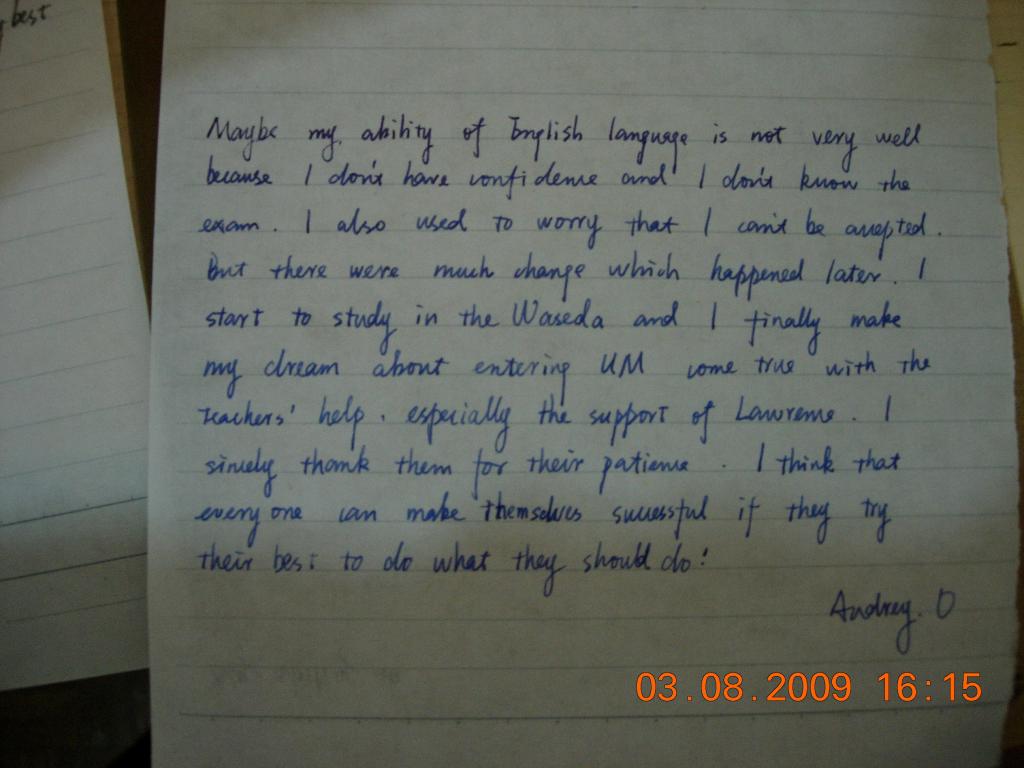 best
Maybe my ability of English language is not very well
because I don't have confidence and I don't know the
exam. I also used to worry that I can't be accepted.
But there were much change which happened later. I
start to study in the Waseda and I finally make
my dream about entering UM come true with the
teachers' help, especially the support of Lawrence. I
sincely thank them for their patience. I think that
everyone can make themselves successful if they try
their best to do what they should do!
Audrey. O
03.08.2009 16:15